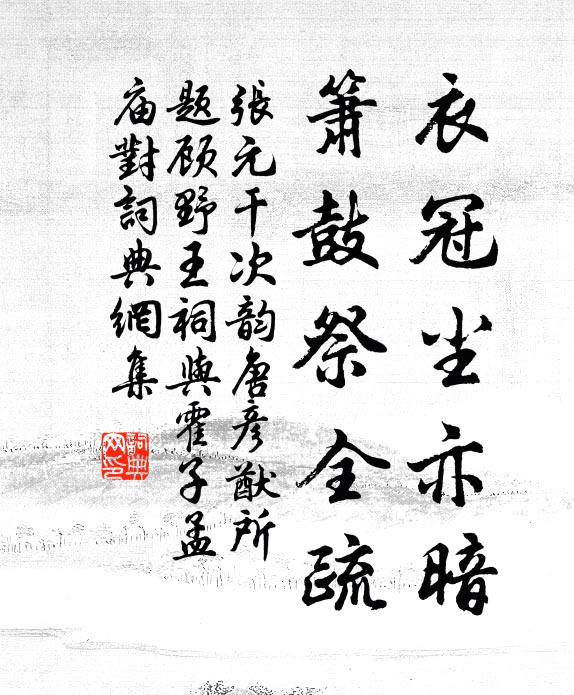 衣冠尘亦暗
箫鼓祭全疏
張元干次韵唐彦猷所
题顾野王祠與霍子孟
庙對詞典網集
詞典網印